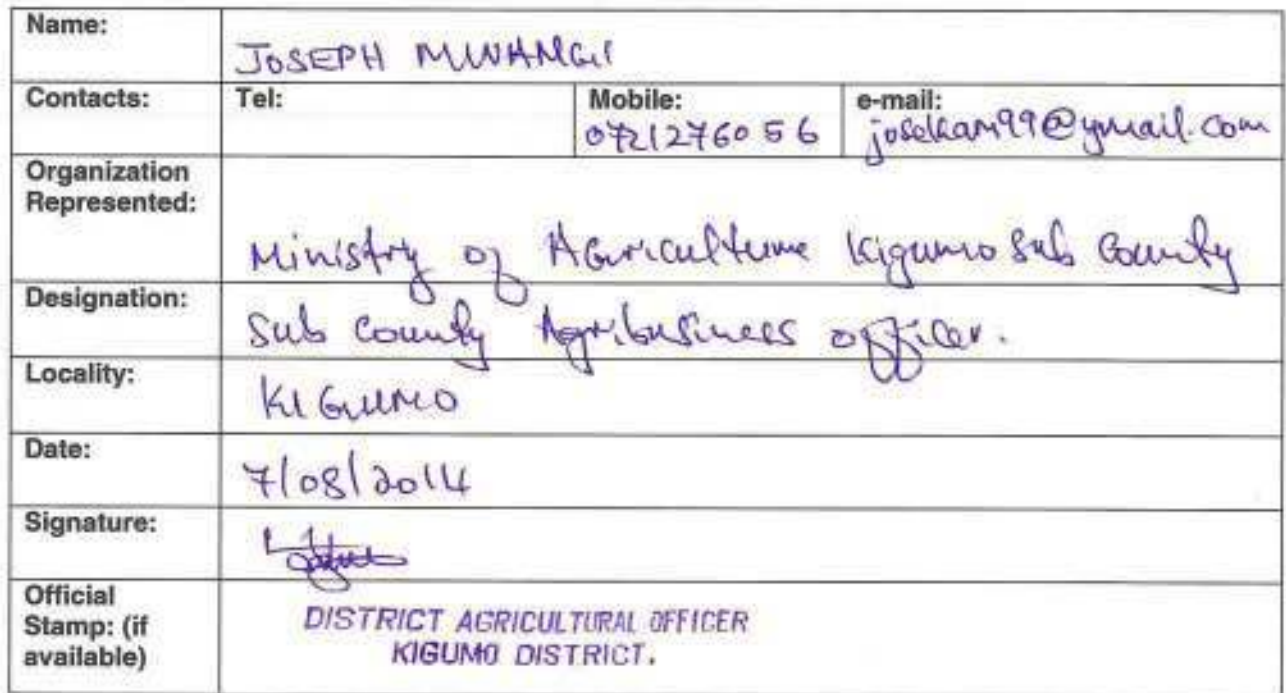 Name:
JOSEPH MWANGI
Contacts: Tel: Mobile: e-mail:
0721276056 josekam99@ymail.com
Organization
Represented:
Ministry of Agriculture Kigumo Sub County
Designation:
Sub County Agribusiness officer.
Locality:
KIGUMO
Date:
7/08/2014
Signature:
Official
Stamp: (if
available)
DISTRICT AGRICULTURAL OFFICER
KIGUMO DISTRICT.